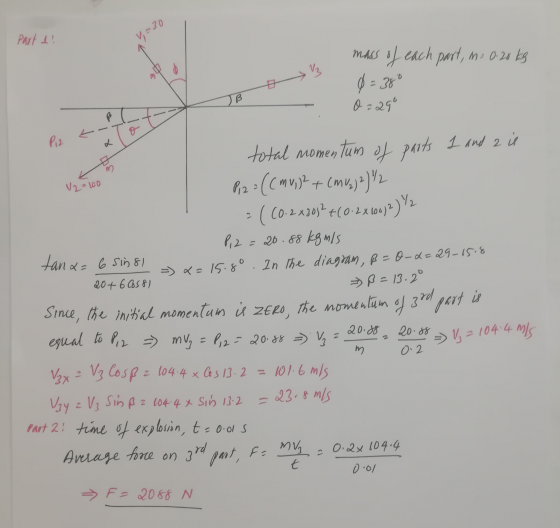 Part 1:
V₁=30
m
φ
V₃
β
β
θ
α
P₁₂
m
V₂=100
mass of each part, m = 0.20 kg
φ = 38°
θ = 29°
total momentum of parts 1 and 2 is
P₁₂ = ((mV₁)² + (mV₂)²)^1/2
= ((0.2×30)² + (0.2×100)²)^1/2
P₁₂ = 20.88 kg m/s
tan α = 6 Sin 81 / 20+6 Cos 81 ⇒ α = 15.8°. In the diagram, β = θ-α = 29-15.8
⇒ β = 13.2°
Since, the initial momentum is ZERO, the momentum of 3rd part is
equal to P₁₂ ⇒ mV₃ = P₁₂ = 20.88 ⇒ V₃ = 20.88/m = 20.88/0.2 ⇒ V₃ = 104.4 m/s
V₃x = V₃ Cos β = 104.4 × Cos 13.2 = 101.6 m/s
V₃y = V₃ Sin β = 104.4 × Sin 13.2 = 23.8 m/s
Part 2: time of explosion, t = 0.01 s
Average force on 3rd part, F = mV₃/t = 0.2×104.4/0.01
⇒ F = 2088 N